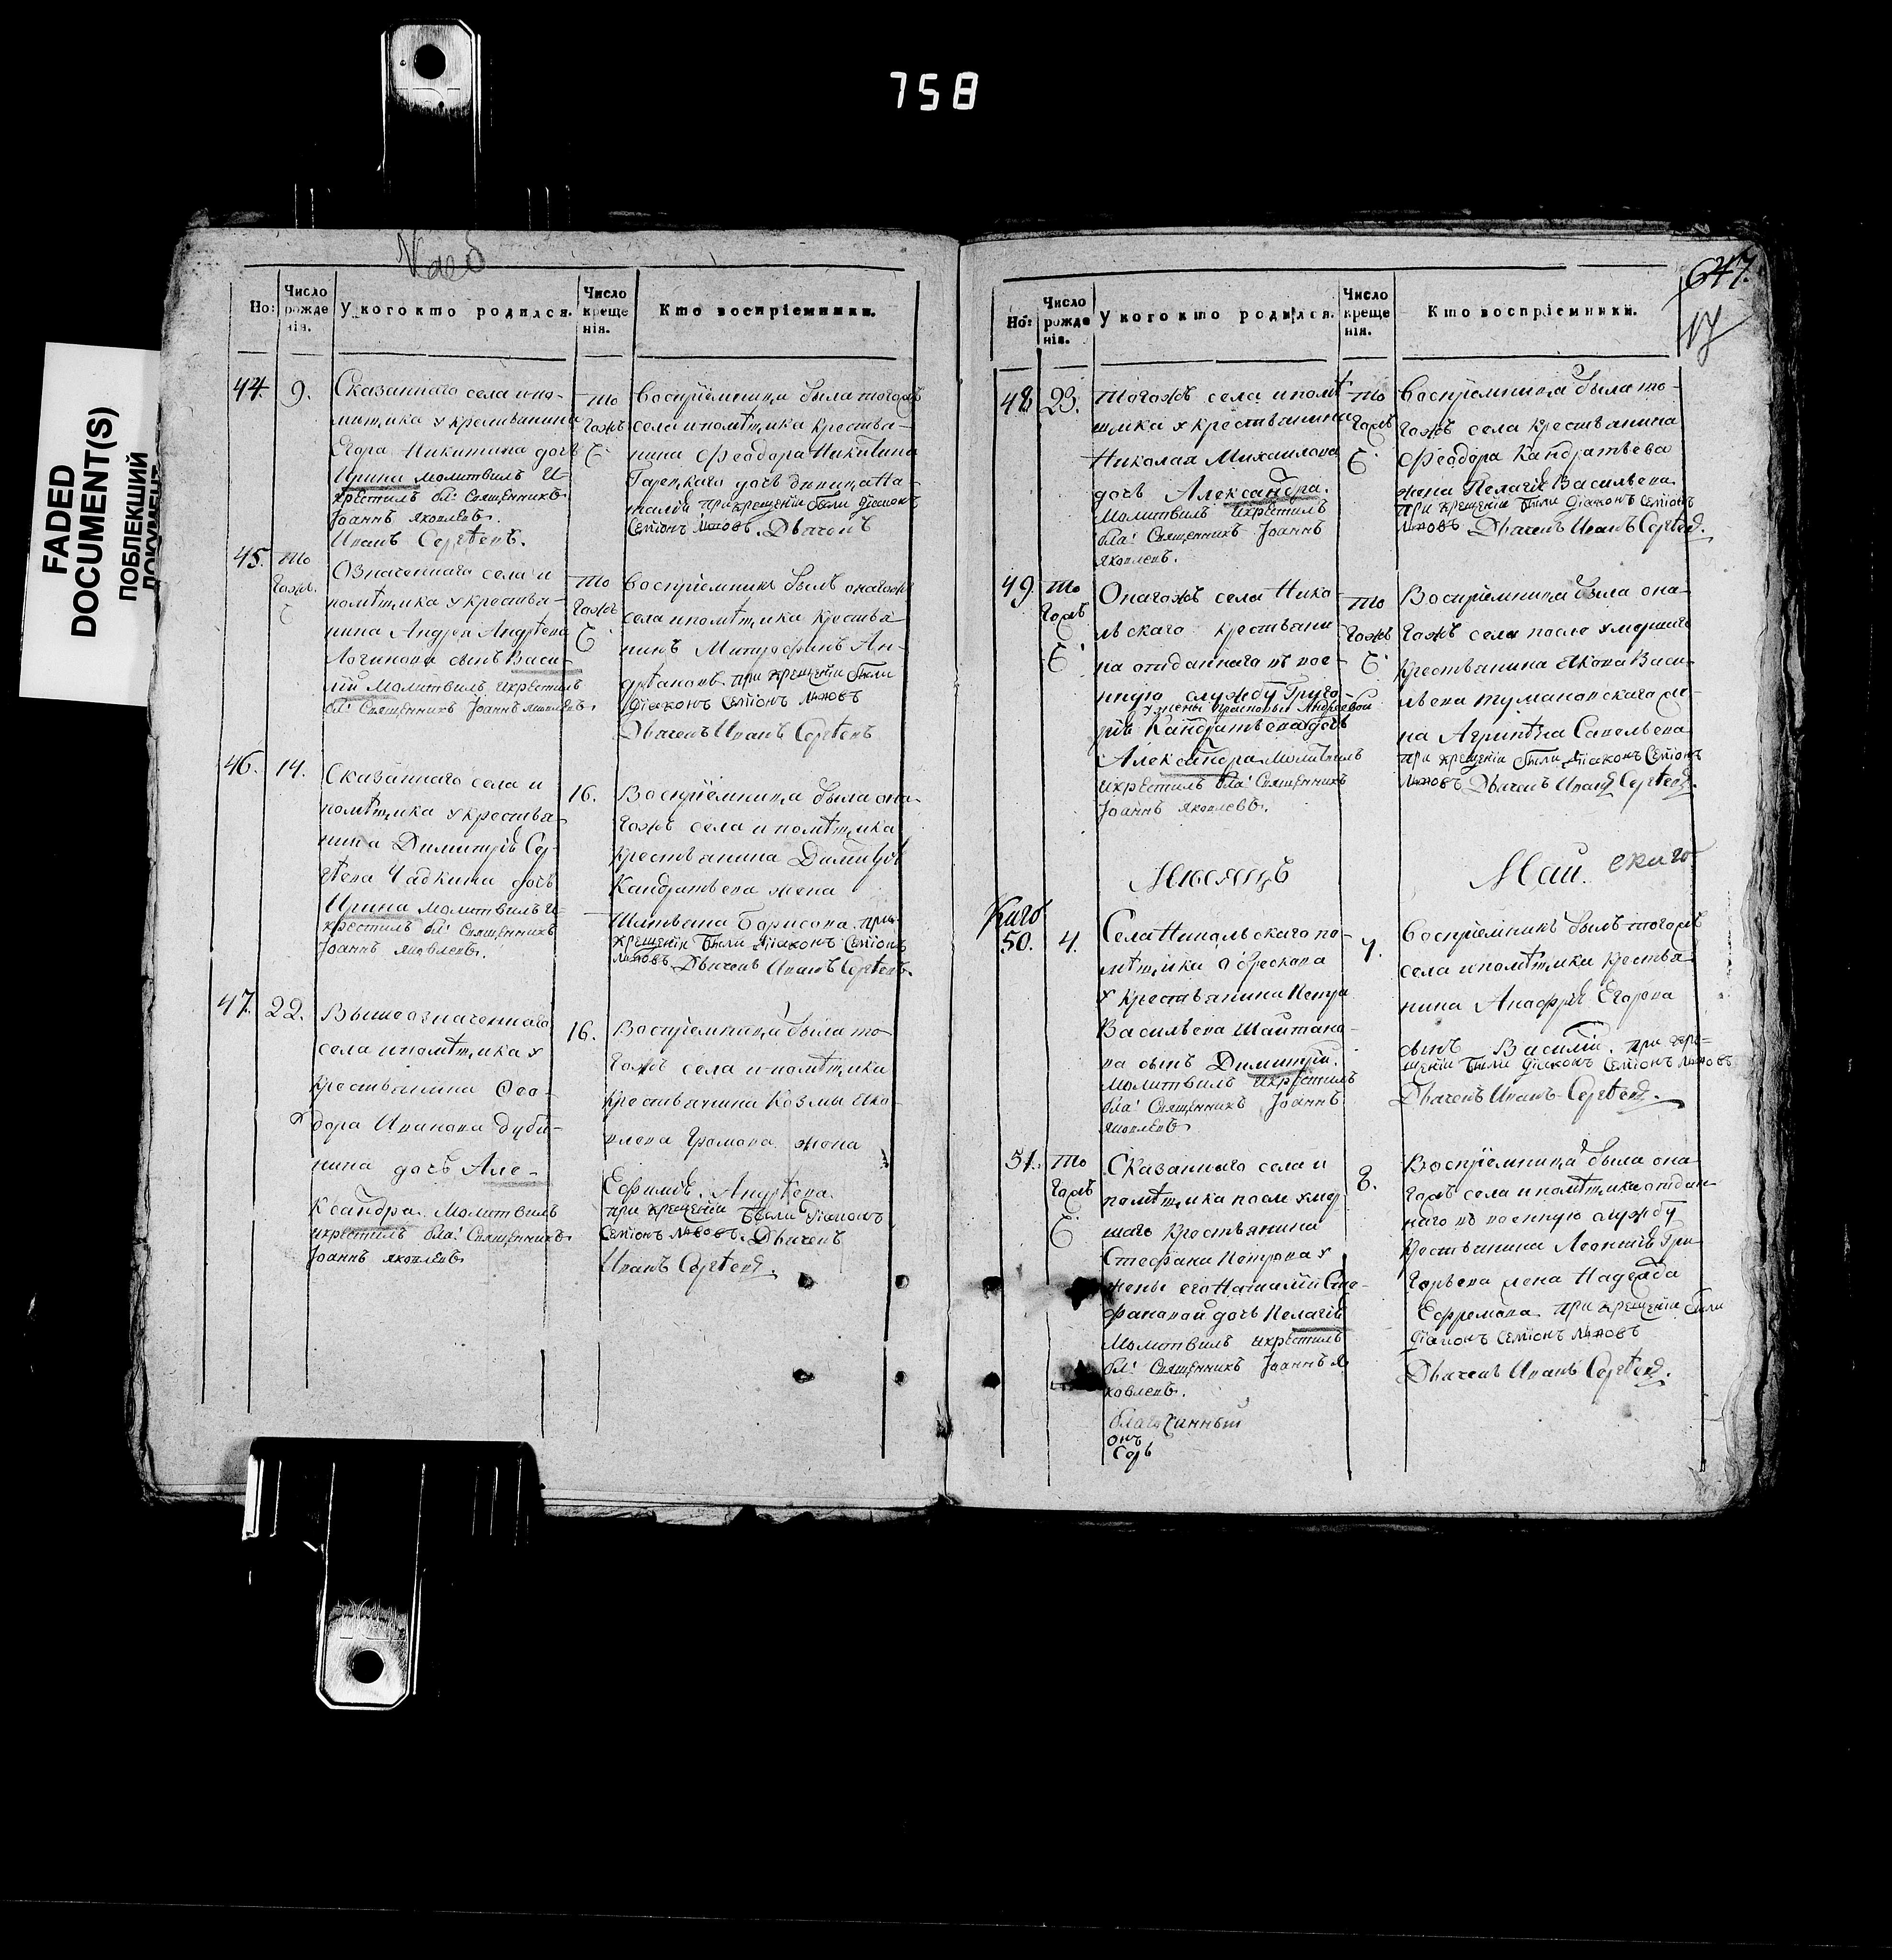 758
FADED
DOCUMENT(S)
ПОБЛЕКШИЙ
ДОКУМЕНТ
Но:
Число рожденія.
У кого кто родился.
Число крещенія.
Кто воспріемники.
44.
9.
Сказаннаго села и по-
мѣщика у крестьянина
Егора Никитина дочь
Ирина молитвилъ и
крестилъ бл: Священникъ
Іоаннъ Яковлевъ.
Иванъ Сергѣевъ.
то
гожъ
Воспріемница была тогожъ
села и помѣщика крестья-
нина Феодора Никитина
дочь девица На-
талія при крещеніи были Діаконъ
Семіонъ Львовъ. Дьячекъ
45.
то
гожъ.
Означеннаго села и
помѣщика у крестья-
нина Андрея Андрѣева
Логинова сынъ Васи-
лій Молитвилъ и крестилъ
бл: Священникъ Іоаннъ Яковлевъ.
то
гожъ
Воспріемникъ былъ онагожъ
села и помѣщика крестья-
нинъ Митрофанъ Ан-
дрѣановъ при крещеніи были
Діаконъ Семіонъ Львовъ
Дьячекъ Иванъ Сергѣевъ
46.
14.
Сказаннаго села и
помѣщика у крестья-
нина Димитрія Сер-
гѣева Чадкина дочь
Ирина молитвилъ и
крестилъ бл: Священникъ
Іоаннъ Яковлевъ.
16.
Воспріемница была она-
гожъ села и помѣщика
крестьянина Димитрія
Кандратьева жена
Борисова при
крещеніи были Діаконъ Семіонъ
Львовъ Дьячекъ Иванъ Сергѣевъ.
47.
22.
Вышеозначеннаго
села и помѣщика у
крестьянина Фео-
дора Иванова Дуби-
нина дочь Але-
ксандра. Молитвилъ
и крестилъ бла: Священникъ
Іоаннъ Яковлевъ
16.
Воспріемница была то-
гожъ села и помѣщика
крестьянина Козмы Яко-
влева Громова жена
Ефимія Андрѣева.
при крещеніи были Діаконъ
Семіонъ Львовъ. Дьячекъ
Иванъ Сергѣевъ.
647.
17
Но:
Число рожденія.
У кого кто родился.
Число крещенія.
Кто воспріемники.
48
23.
Тогожъ села и помѣ-
щика у крестьянина
Николая Михаилова
дочь Александра.
Молитвилъ и крестилъ
бла: Священникъ Іоаннъ
Яковлевъ.
то
гожъ
Воспріемница была то-
гожъ села крестьянина
Феодора Кандратьева
жена Пелагія Васильева
при крещеніи были Діаконъ Семіонъ
Львовъ Дьячекъ Иванъ Сергѣевъ.
49.
то
гожъ
Онагожъ села Нико-
льскаго крестьяни
на отданнаго въ вое-
нную службу Григо
у жены Андреевой
рія Кандратьева дочь
Александра Молитвилъ
и крестилъ бла: Священникъ
Іоаннъ Яковлевъ.
то
гожъ
Воспріемница была она-
гожъ села после умершаго
крестьянина Якова Васи-
льева Тумановскаго же-
на Савельева
при крещеніи были Діаконъ Семіонъ
Львовъ Дьячекъ Иванъ Сергѣевъ.
Мѣсяцъ
Май.
50.
4.
Села Никольскаго по-
мѣщика
у крестьянина Петра
Васильева Шайтано-
ва сынъ Димитрій.
Молитвилъ и крестилъ
бла: Священникъ Іоаннъ
Яковлевъ
Воспріемникъ былъ тогожъ
села и помѣщика крестья-
нина Егорова
сынъ Василій. при кре-
щеніи были Діаконъ Семіонъ Львовъ
Дьячекъ Иванъ Сергѣевъ.
51.
то
гожъ
Сказаннаго села и
помѣщика после умер
шаго крестьянина
Стефана Петрова у
жены его Наталіи Сте-
фановой дочь Пелагія
Молитвилъ и крестилъ
бл: Священникъ Іоаннъ Я
ковлевъ.
8.
Воспріемница была она-
гожъ села и помѣщика отдан-
наго въ военную службу
крестьянина Леонтія Гри-
горьева жена Надежда
Ефремова при крещеніи были
Діаконъ Семіонъ Львовъ
Дьячекъ Иванъ Сергѣевъ.